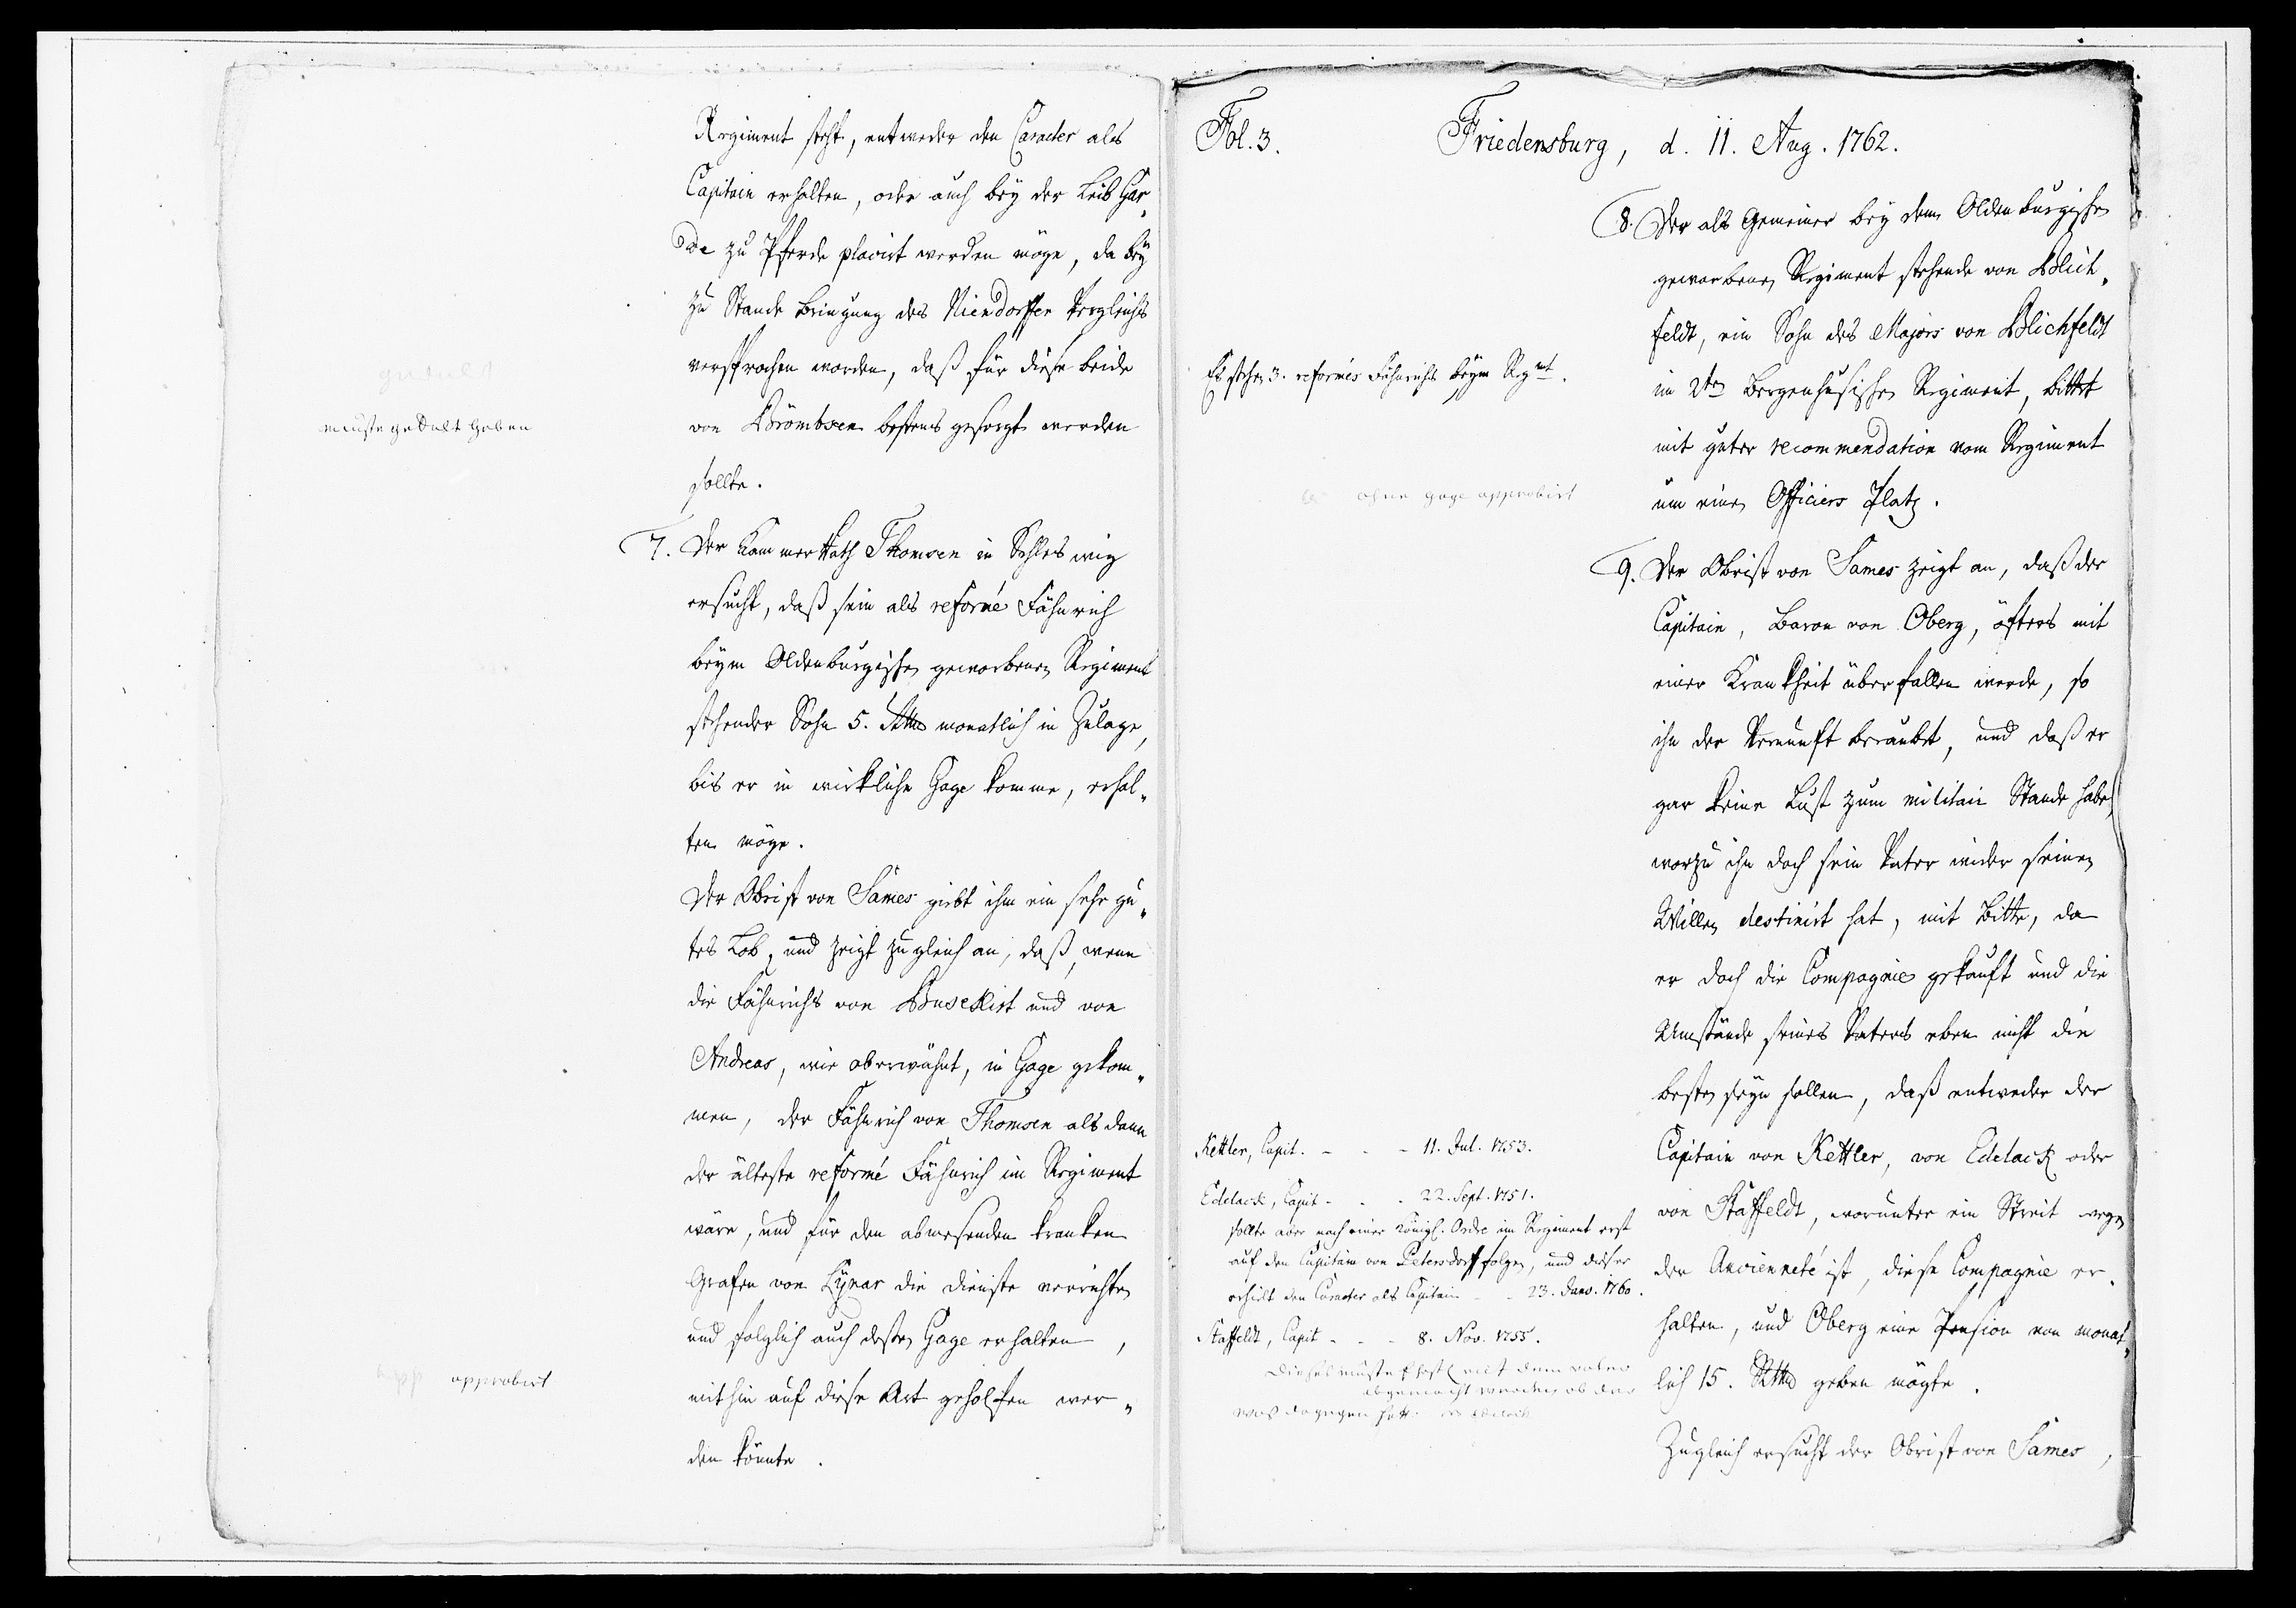 Regiment steht, entweder den Caracter als
Capitain erhalten, oder auch bey der Leib Gar„
de zu Pferde placirt werden möge, da bey
zu Stande bringung des Niendorffer Vergleichs
versprochen worden, daß für diese beide
von Brömbsen bestens gesorgt werden
sollte.
muste gedult haben
7. Der Kammer Rath Thomsen in Schleswig
ersucht, daß sein als reformé Fähnrich
beym Oldenburgischen geworbenen Regiment
stehender Sohn 5. Rthlr monatlich in Zulage,
bis er in wirkliche Gage komme, erhal„
ten möge.
Der Obrist von Sames giebt ihm ein sehr gu„
tes Lob, und zeigt zugleich an, daß, wenn
die Fähnrichs von Buseckist und von
Andreas, wie oberwähnt, in Gage gekom„
men, der Fähnrich von Thomsen alsdann
der älteste reformé Fähnrich im Regiment
wäre, und für den abwesenden kranken
Grafen von Lynar die Dienste verrichten
und folglich auch dessen Gage erhalten,
mithin auf diese Art geholfen wer„
den könnte.
approbirt
Fol. 3. Friedensburg, d. 11. Aug. 1762.
8. Der als Gemeiner bey dem Oldenburgischen
geworbenen Regiment stehende von Blich„
feldt, ein Sohn des Majors von Blichfeldt
im 2ten Bergenhusischen Regiment, bittet
mit guter recommendation vom Regiment
um einen Officiers Platz.
Es stehen 3. reformés Fähnrichs beym Regmt.
ohne gage approbirt
9. Der Obrist von Sames zeigt an, daß der
Capitain, Baron von Oberg, öfters mit
einer Krankheit überfallen werde, so
ihn der Vernunft beraubet, und daß er
gar keine Lust zum militair Stande habe,
worzu ihn doch sein Vater wider seinen
Willen destinirt hat, mit Bitte, da
er doch die Compagnie gekauft und die
Umstände seines Vaters eben nicht die
besten seyn sollen, daß entweder der
Capitain von Kettler, von Edelack oder
von Staffeldt, worunter ein Streit wegen
der Ancienneté ist, diese Compagnie er„
halten, und Oberg eine Pension von monat„
lich 15. Rthlr geben mögte.
Zugleich ersucht der Obrist von Sames,
Kettler, Capit. - - - 11. Jul. 1753.
Edelack, Capit - - - 22. Sept. 1751.
sollte aber nach einer Königl. Ordre im Regiment erst
auf den Capitain von Petersdorff folgen, und dieser
erhielt den Caracter als Capitain - - 23. Janv. 1760.
Staffeldt, Capit - - - 8. Nov. 1755.